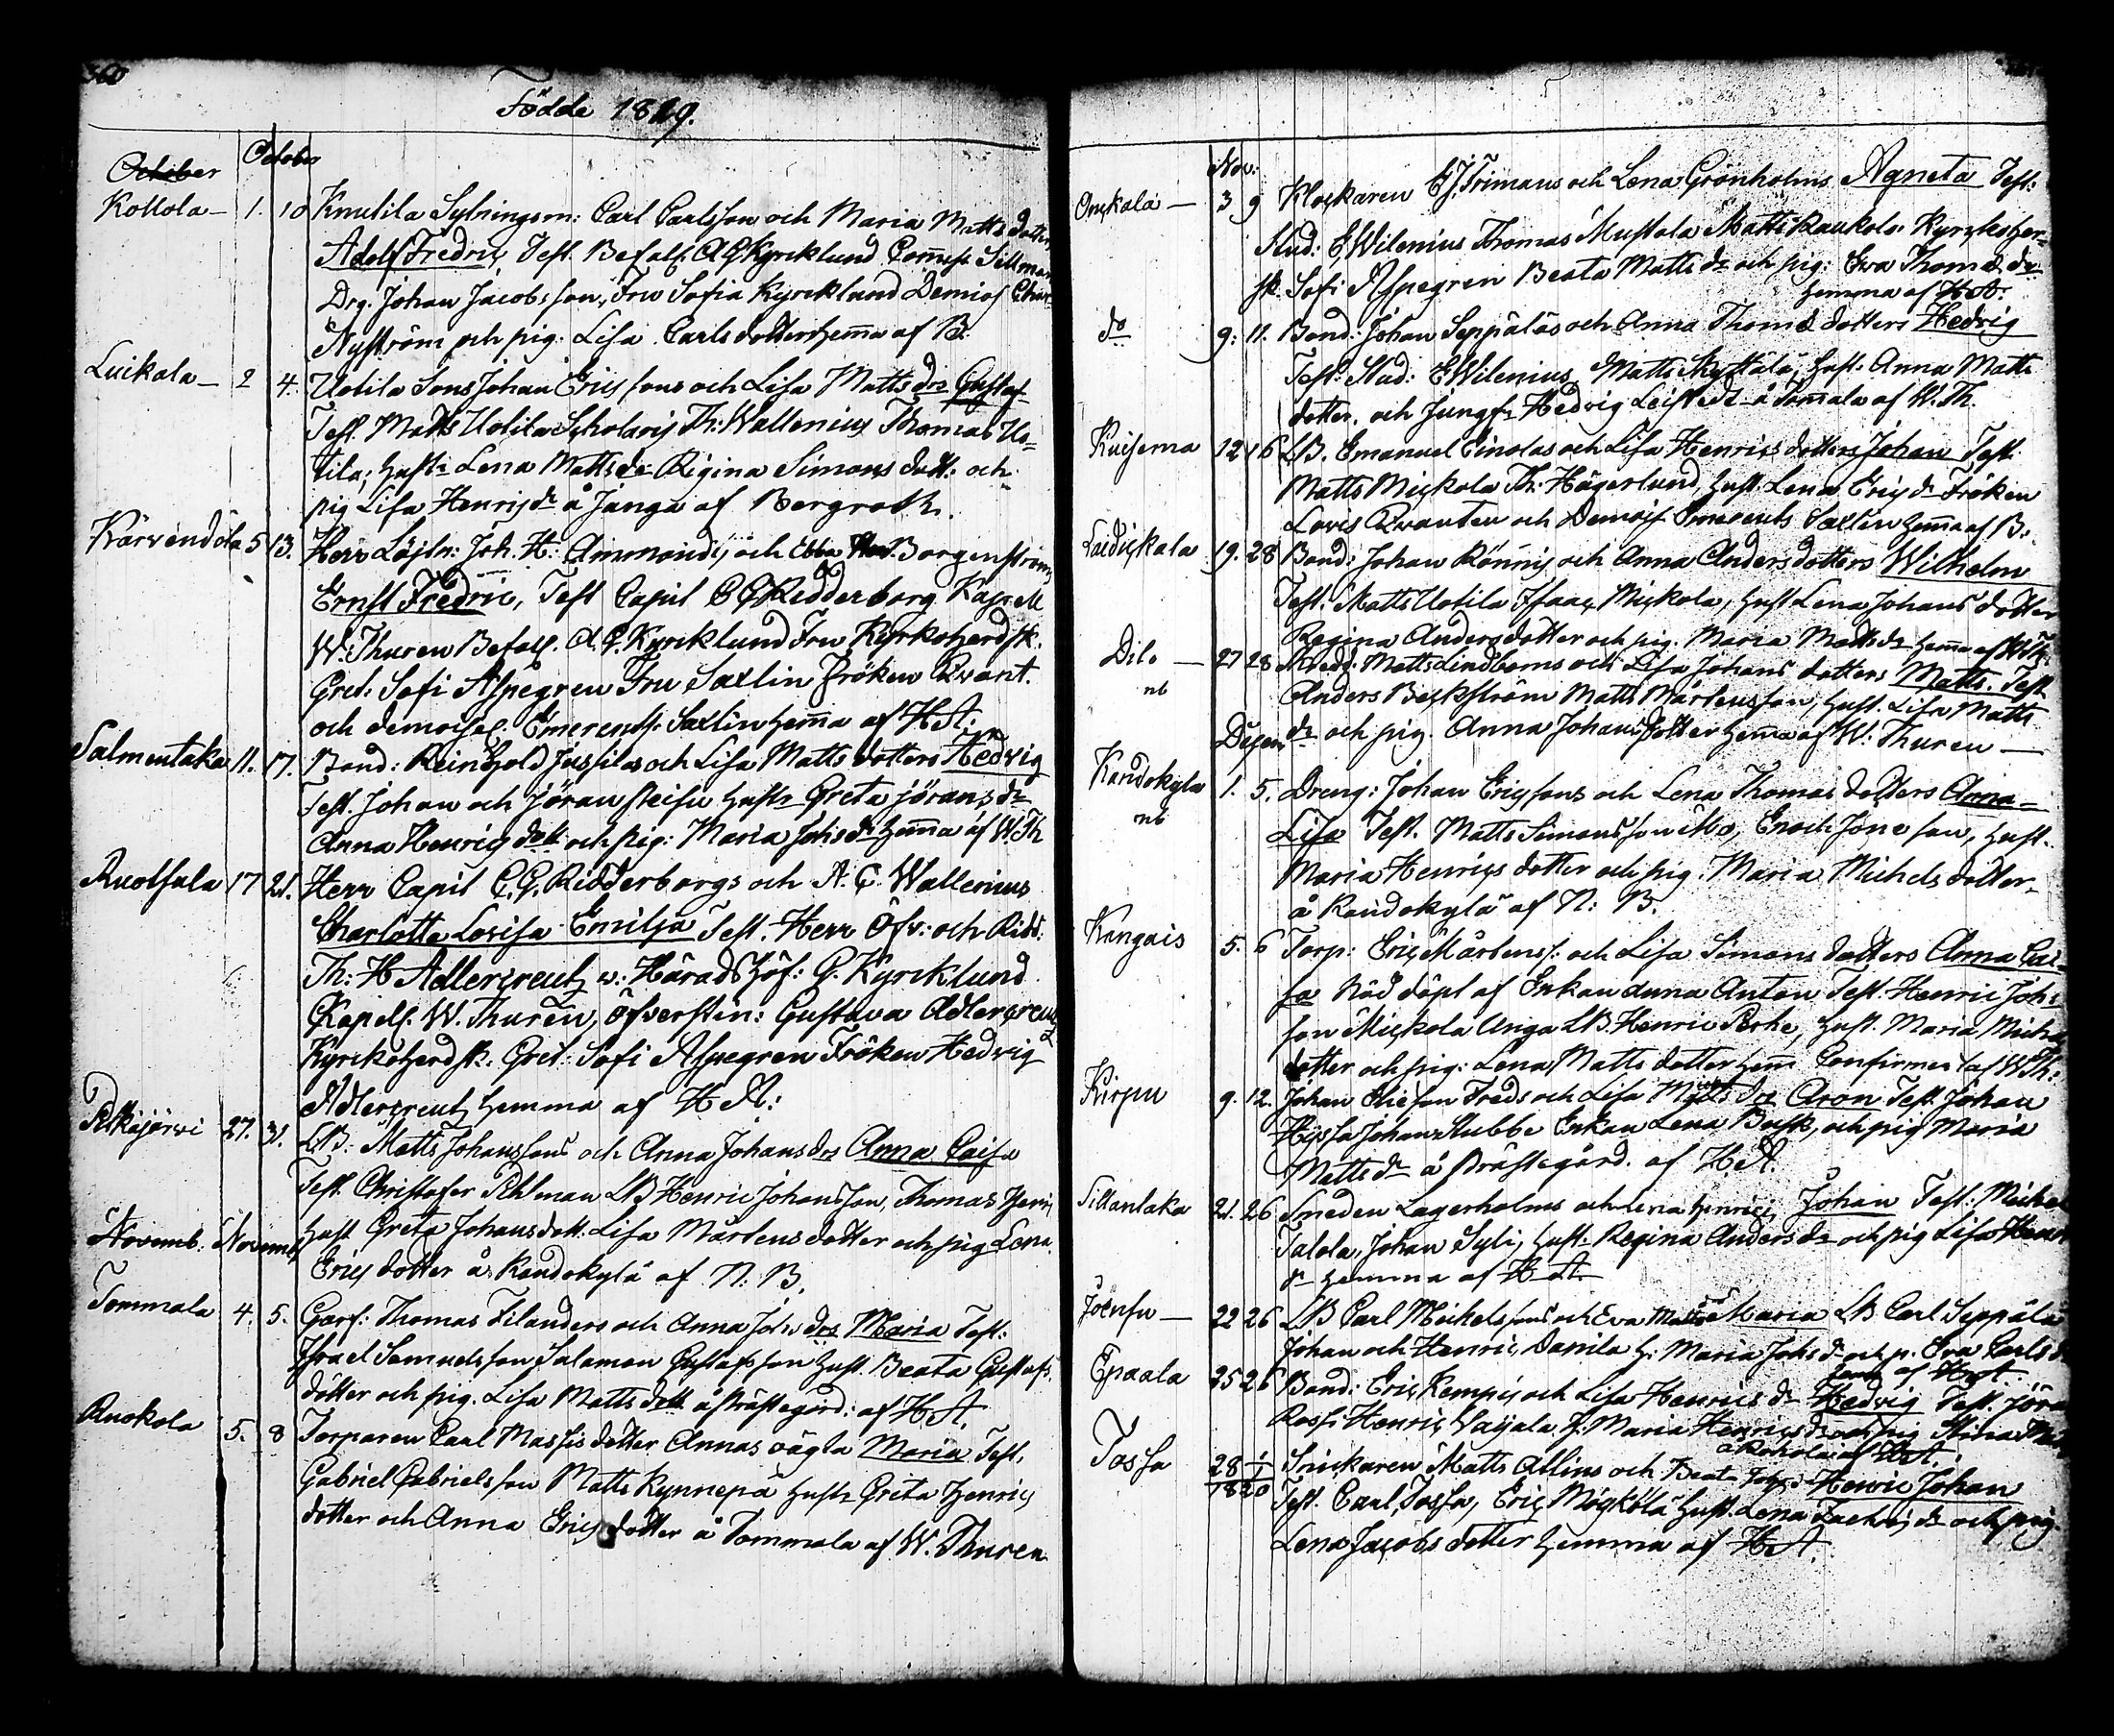 360
Födde 1819.
October October
Kollola — 1. 10 Knutila Sytningsm: Carl Carlsson och Maria Matts dotter
Adolf Fredric, Test. Befalh. A G Kyrcklund Comiss Sillman
Drg. Johan Jacobsson, Fru Sofia Kyrcklund Demois Char
Nyström och pig: Lisa Carlsdotter hem̄a af B.
Luikala — 2 4. Uotila Sons Johan Ericssons och Lisa Matts drs Gustaf
Test. Matts Uotila Scholaris Th: Wallenius Thomas Uo-
tila, hust: Lena Matts dr Regina Simons dott. och
pig Lisa Henrics dr å Janga af Bergroth.
Kärvendola 5 13. Herr Löjtn: Joh. H: Ammondts och Ebba Borgenströms
Ernst Fredric, Test Capit C G Ridderborg Kapell
W: Thuren Befalh. A. G. Kyrcklund Fru Kyrkoherdsk.
Gret: Sofi Aspegren Fru Saxlin Fröken Qvant.
och demoisel. Emerents: Saxlin hem̄a af H A:
Salmentaka 11. 17. Bond: Reinhold Jussilas och Lisa Matts dotters Hedvig
Test. Johan och Jöran Pleisu hustr Greta Jörans dr
Anna Henrics dott och pig: Maria Johs dr hem̄a af W. Th
Ruotsula 17 21. Herr Capit C. G. Ridderborgs och A. C. Wallenius
Charlotta Lovisa Emilja Test. Herr Öfv: och Ridd:
Th: H Adlercreutz v: Häradshöf: G. Kyrcklund
Kapell. W. Thurén, Öfverstin: Gustava Adlercreutz
Kyrkoherdsk. Gret: Sofi Aspegren Fröken Hedvig
Adlercreutz hemma af H A:
Pitkäjärvi 27. 31. LB: Matts Johanssons och Anna Johans drs Anna Caisa
Test. Christofer Pihlman LB Henric Johansson, Thomas Henric
Novemb: Novemb hust Greta Johansdott. Lisa Mårtensdotter och pig Lena
Erics dotter å Kandokylä af N: B.
Tommala 4. 5. Garf: Thomas Filanders och Anna Joh: drs Maria Test:
Israel Samuelsson Salamon Gustafsson hust. Beata Gustafs
dotter och pig. Lisa Matts dott å Prästegård: af H A.
Ruokola 5. 8 Torparen Carl Massis dotter Annas oägta Maria Test.
Gabriel Gabrielsson Matts Kynnepä hustr Greta Henrics
dotter och Anna Erics dotter å Tommola af W. Thuren
Nov:
Onkala — 3 9 Klockaren E J. Frimans och Lena Grönholms Agneta Test:
Stud: E Wilenius Thomas Mustala Matts Raukola Kyrkoher-
sk. Sofi Aspegren Beata Matts dr och pig: Eva Thomæ dr
hemma af H A:
do 9: 11. Bond: Johan Seppäläs och Anna Thomæ dotters Hedvig
Test: Stud: E Wilenius Matts Skyttälä, hust: Anna Matts
dotter, och Jungfr Hedvig Leistedt å Tom̄ala af W. Th.
Kuisema 12 16 LB. Emanuel Einolas och Lisa Henrics dotters Johan Test
Matts Mickola Th: Hägerlund, hust. Lena Erics dr Fröken
Lovis Qvanten och Demois Emerents Saxlin hem̄a af B.
Laidickala 19. 28 Bond: Johan Rönnis och Anna Anders dotters Wilhelm
Test: Matts Uotila Isaac Mickola, hust Lena Johans dotter
Regina Andersdotter och pig. Maria Matts dr hem̄a af W Th:
Dito — 27 28 Matts Lindboms och Lisa Johans dotters Matts. Test
nb Anders Beckström Matts Mårtensson, hust. Lisa Matts
Decem dr och pig. Anna Johans dotter hem̄a af W: Thuren —
Kandokylä 1. 5. Dreng: Johan Ericssons och Lena Thomas dotters Anna-
nb Lisa Test. Matts Simonsson Mo, Enoch Jönsson, hust.
Maria Henrics dotter och pig. Maria Michels dotter
å Kandokylä af N: B.
Kangais 5. 6 Torp: Eric Mårtenss: och Lisa Simons dotters Anna Cai-
sa Nöd döpt af Enkan Anna Anton Test. Henric Joh:
son Mickola Unga LB Henric Perhe, hust. Maria Michels
dotter och pig: Lena Matts dotter hem̄ Confirmerat af W Th:
Kirpu 9. 12. Johan Eliesson Freds och Lisa Matts drs Aron Test. Johan
Hyssa Johan Stubbe Enkan Lena Busk, och pig Maria
Matts dr å Prästegård. af H A.
Sittanlaka 21. 26 Smeden Lagerholms och Lena Henrics Johan Test: Michel
Talola, Johan Syli, hust: Regina Anders dr och pig Lisa Henr
dr hemma af H A
Joensu — 22 26 LB Carl Michelssons och Eva Matts Maria LB Carl Seppälä
Johan och Henric Danila h: Maria Johs dr och p. Eva Carls d
af H A
Epaala 25 26 Bond: Eric Kempis och Lisa Henrics dr Hedvig Test. Jöra
Rossi Henric Vaijala h. Maria Henrics dr och pig Stina
å Rokola af H A.
Tossa 28 1/1 1820 Snickaren Matts Allins och Beata Joh: d Henric Johan
Test. Carl Tossa, Eric Möykölä hust. Lena Zachris dr och pig.
Lena Jacobs dotter hemma af H A.